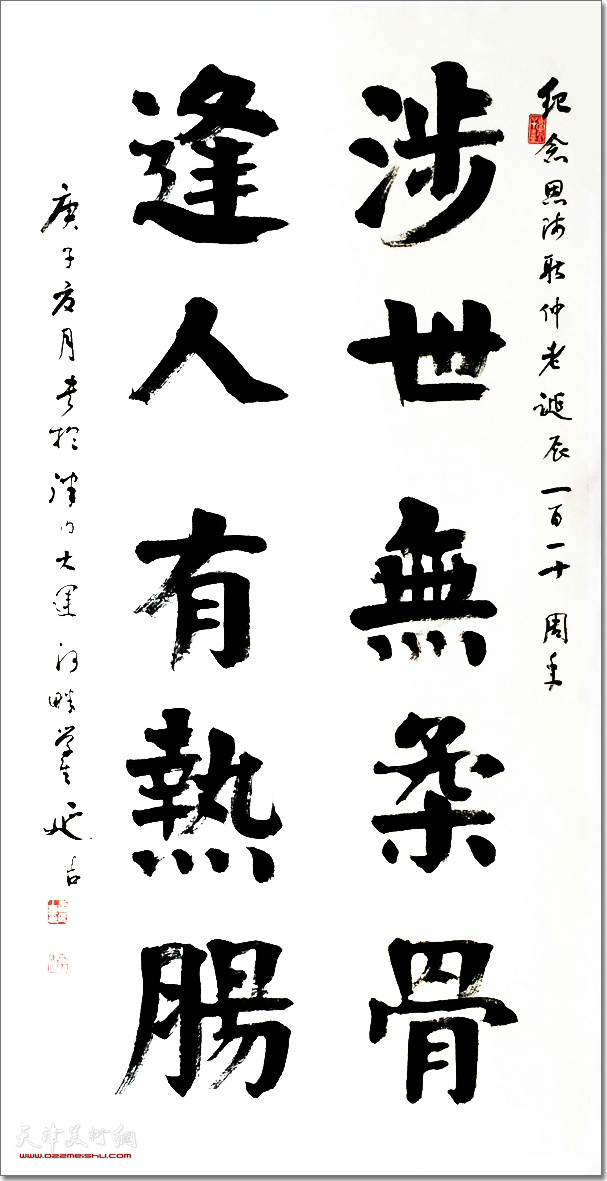 纪念恩师耿仲老诞辰一百一十周年
涉世無柔骨
逢人有熱腸
庚子夏月书於津门大运河畔 延吉
天津美術網
www.022meishu.com